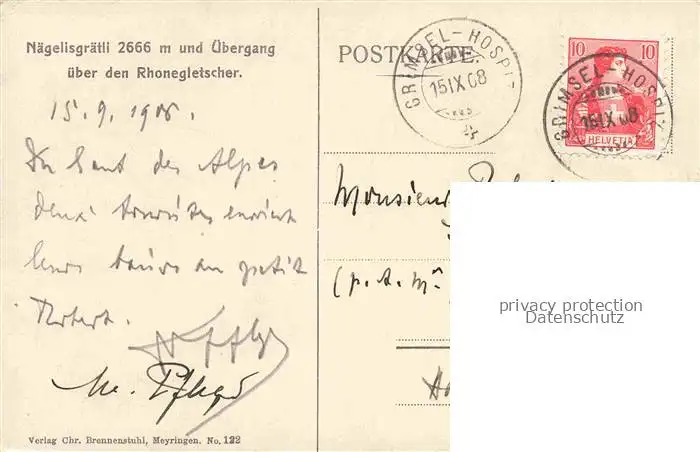 Nägelisgrätli 2666 m und Übergang
über den Rhonegletscher.
POSTKARTE.
GRIMSEL-HOSPIZ
15 IX 08
10 10
HELVETIA
GRIMSEL-HOSPIZ
15 IX 08
15.9.1908.
Du haut des Alpes
deux touristes envoient
leurs au petit
Monsieur
(p. A. Mr
privacy protection
Datenschutz
Verlag Chr. Brennenstuhl, Meyringen. No. 122